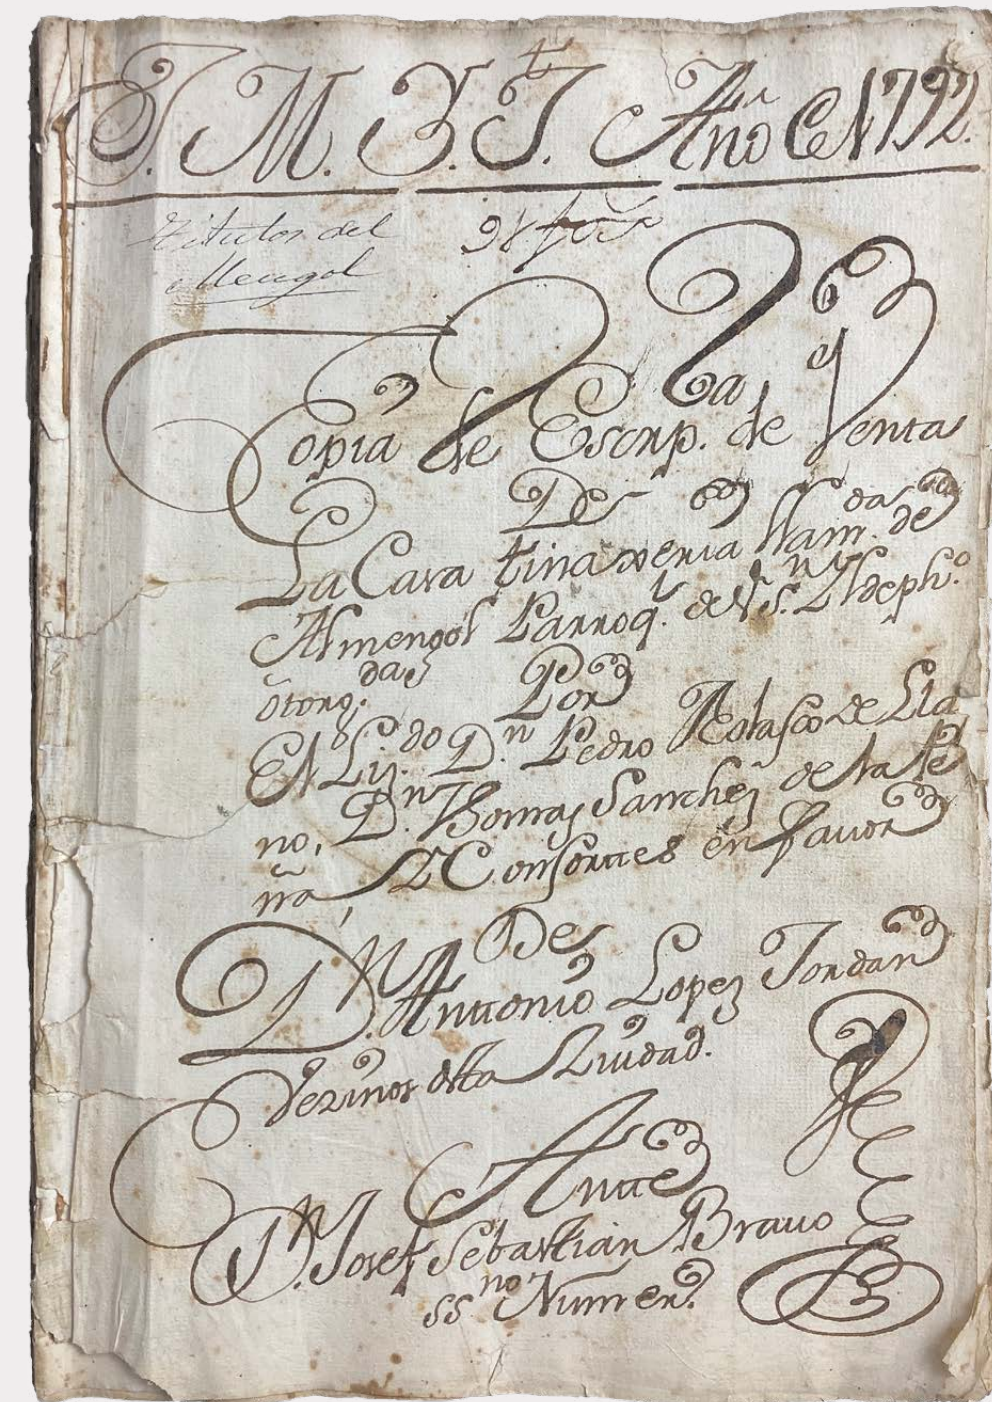 J. M. Y. J. Año del 1792.
Titulos del
Almengol
Copia de Escrip.ra de Venta
De
La Casa tinaxeria llam.da de
Almengol Parroq. del S.r S.n Yldeph.o
otorg.da Por
El Liz.do D.n Pedro Nolasco de Lla
no, D.n Thomas Sanchez de la Pe
ña, Y Consortes en favor
De
D.n Anttonio Lopez Jordan
Vezinos desta Ziudad.
Antte
D.n Josef Sebastian Bravo
ss.no Numer.